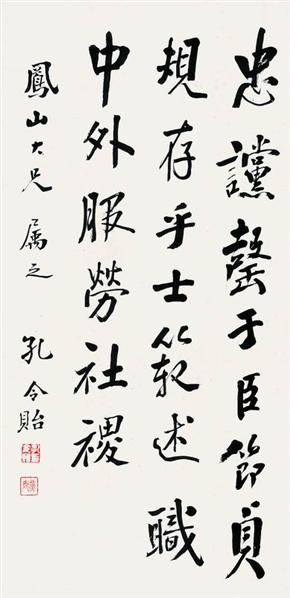 忠讜罄于臣節貞
規存乎士範述職
中外服勞社稷
鳳山大兄属之 孔令貽